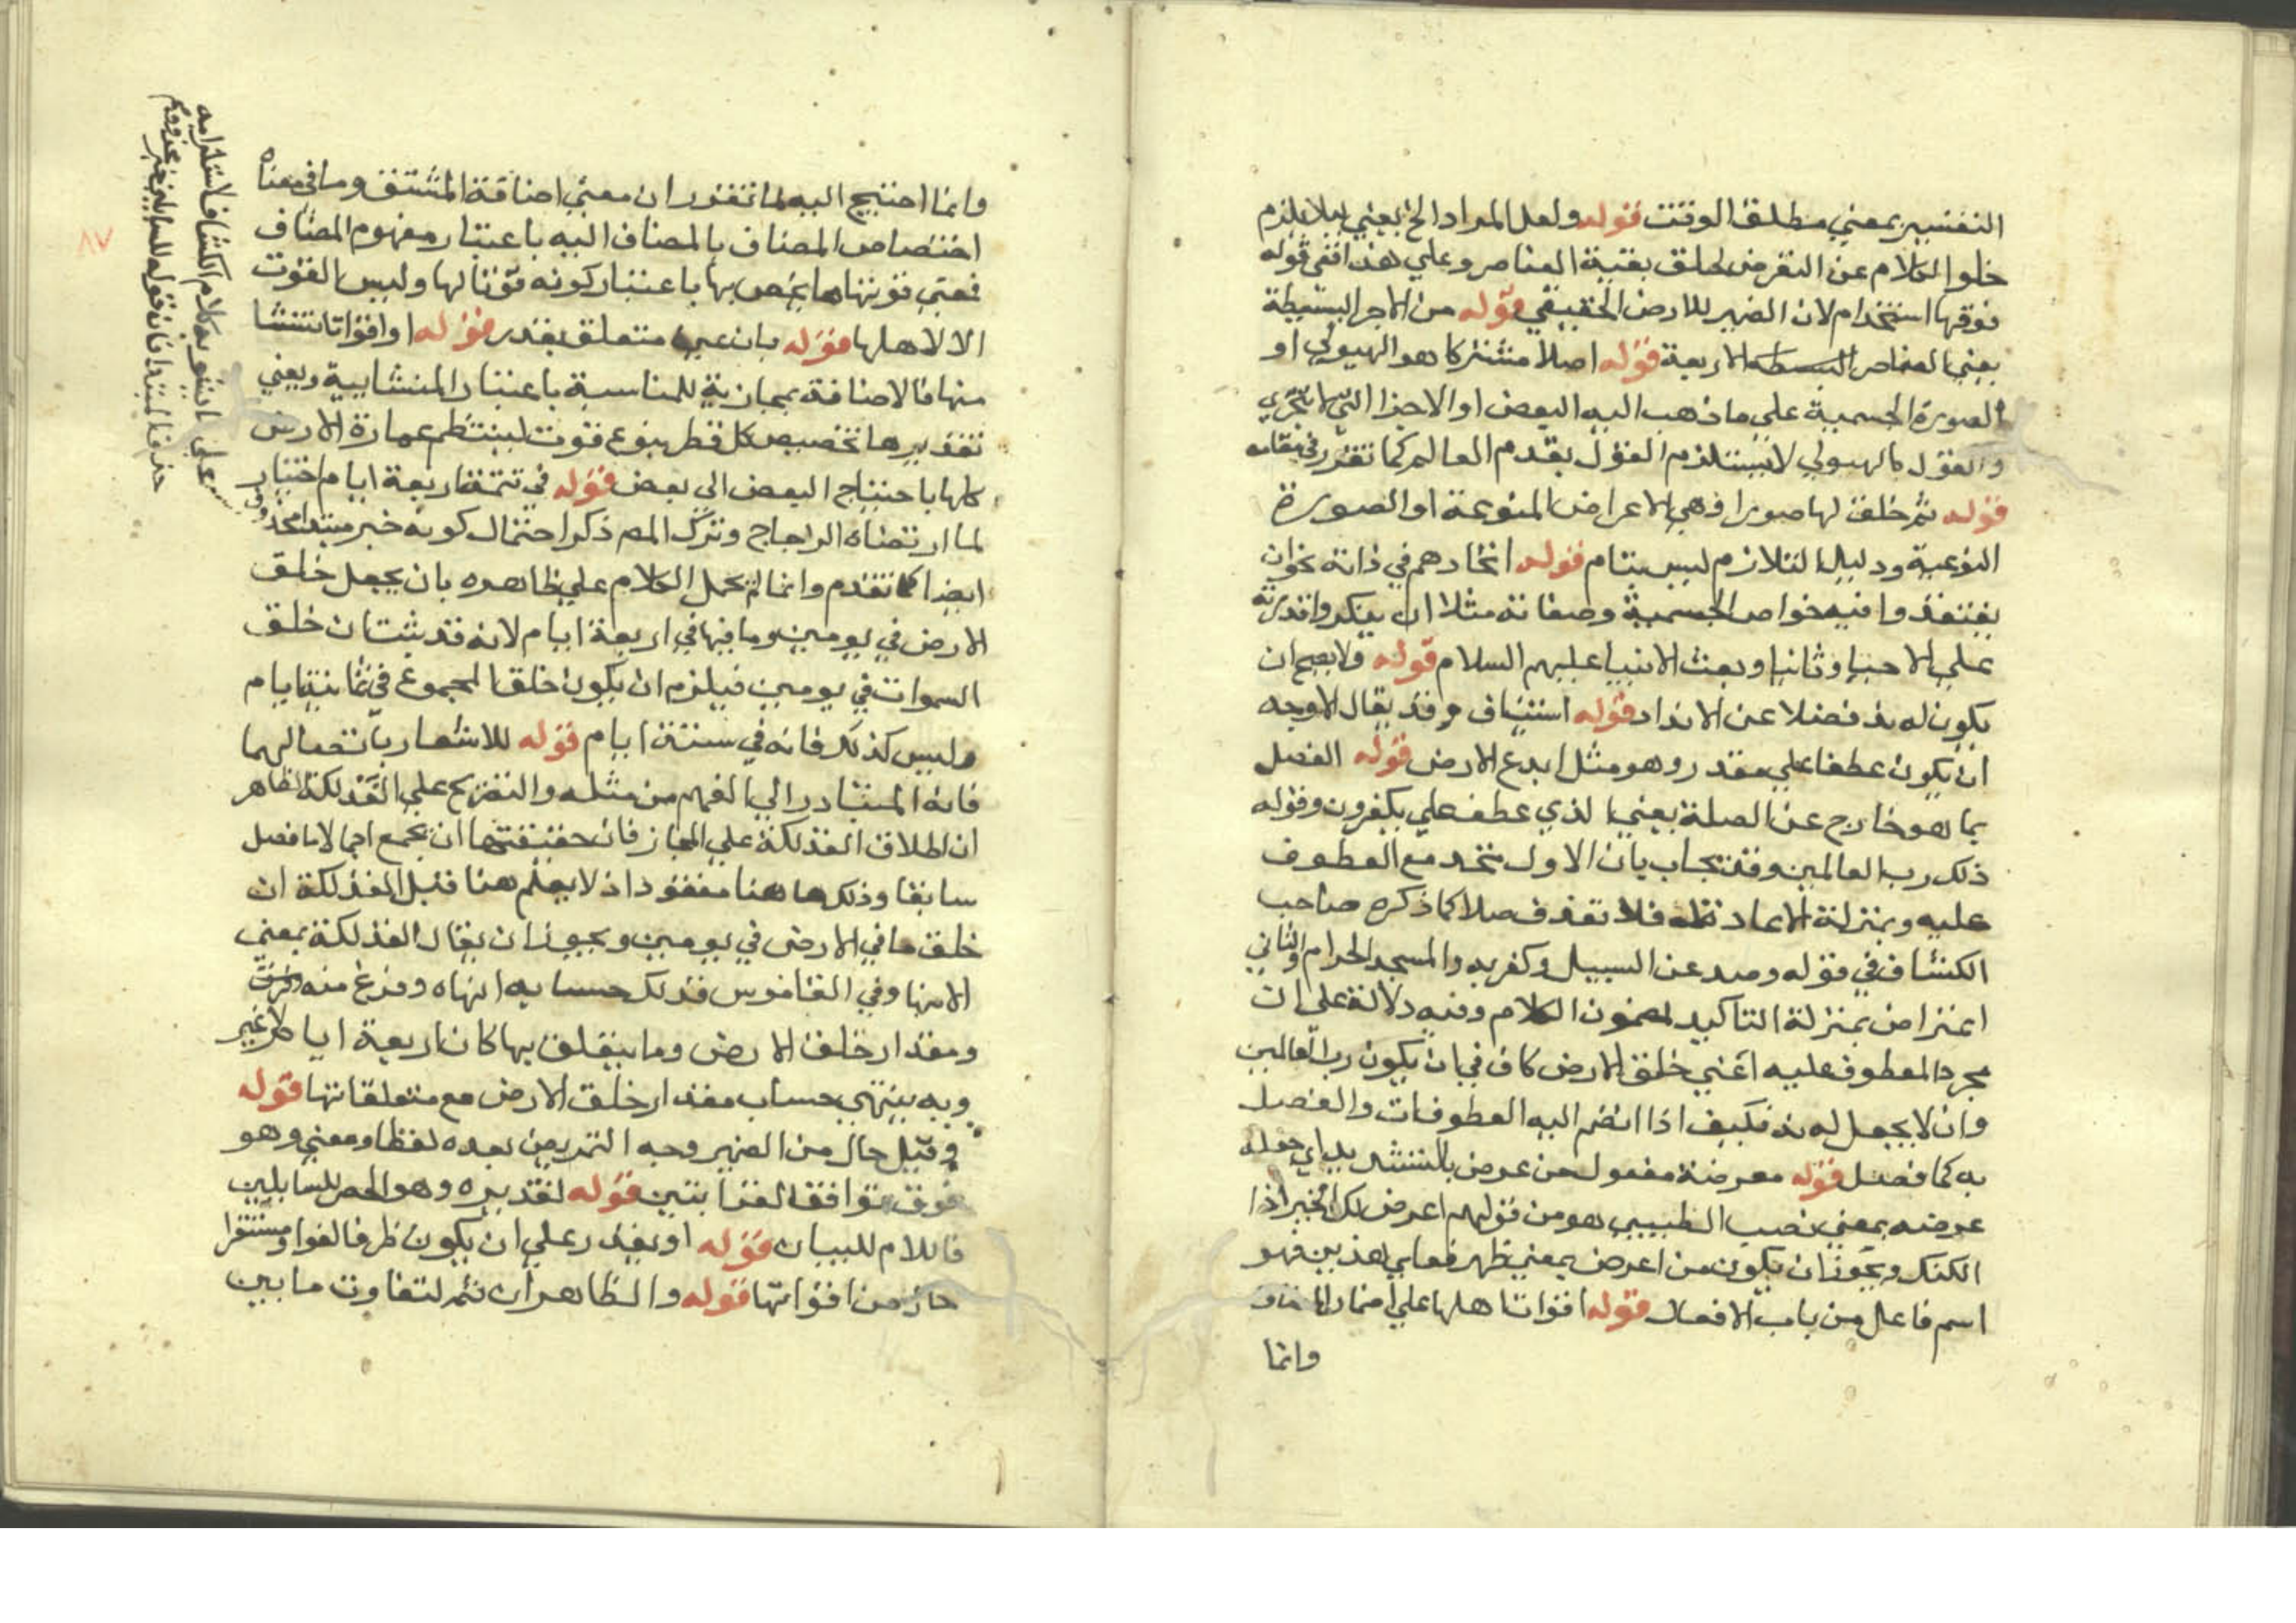 التفسير بمعني مطلق الوقت قوله ولعل المراد الخ يعني ليلا يلزم
خلوا الكلام عن التعرض لخلق بقية العناصر وعلي هذا ففي قوله
فوقها استخدام لان الضمير للارض الحقيقي قوله من الاجرا البسيطة
يعني العناصر البسيطه الاربعة قوله اصلا مشتركا هو الهيولي او
الصورة الجسمية علي ما ذهب اليه البعض او الاجزا التي لا تتجزي
والقول بالهيولي لا يستلزم القول بقدم العالم كما تقرر في مقامه
قوله ثم خلق لها صورا وهي الاعراض المنوعة او الصورة
النوعية ودليل التلازم ليس بتام قوله الحادهم في ذاته بخوان
يعتقدوا فيه خواص الجسمية وصفاته مثلا ان ينكروا قدرته
علي الاحيا وثانيا وبعث الانبيا عليهم السلام قوله ولا يصح ان
يكون له ند فضلا عن الانداد قوله استيناف وقد يقال الاوجه
ان يكون عطفا علي مقدر وهو مثل ابدع الارض قوله الفصل
بما هو خارج عن الصلة يعني الذي عطف علي يكفرون وقوله
ذلك رب العالمين وقد يجاب بان الاول متحد مع المعطوف
عليه وبمنزلة الاعادة له فلا تعد فصلا كما ذكره صاحب
الكشاف في قوله وصد عن السبيل وكفر به والمسجد الحرام والثاني
اعتراض بمنزلة التاكيد لمضمون الكلام وفيه دلالة علي ان
مجرد المعطوف عليه اعني خلق الارض كاف في ان يكون رب العالمين
وان لا يجعل له ند فكيف اذا انضم اليه المعطوفات والفصل
به كما فصل قوله معرضة مفعول من عرض بالتشديد اي جعله
عرضه بمعني نصب الطيبي هو من قولهم اعرض لك الخير اذا
امكنك ويجوز ان يكون من اعرض بمعني ظهر فعلي هذين فهو
اسم فاعل من باب الافعال قوله اقوات اهلها علي اضمار المضاف
وانما
وانما احتيج اليه لما تقرر ان معني اضافة المشتق وما في معناه
اختصاص المضاف بالمضاف اليه باعتبار مفهوم المضاف
فمعني قوتها ما يختص بها باعتبار كونه قوتا لها وليس القوت
الا لاهلها قوله بان عين متعلق بقدر قوله او اقواتا تنشا
منها فالاضافة مجازية للمناسبة باعتبار المنشايية ويعني
تقديرها تخصيص كل قطر بنوع قوت لينتظم عمارة الارض
كلها باحتياج البعض الي بعض قوله في تتمة اربعة ايام اختيار
لما ارتضاه الزجاج وترك المص ذكر احتمال كونه خبر مبتدا محذوف
ايضا كما تقدم وانما لم يحمل الكلام علي ظاهره بان يجعل خلق
الارض في يومين وما فيها في اربعة ايام لانه قد يثبت ان خلق
السموات في يومين فيلزم ان يكون خلق المجموع في ثمانية ايام
وليس كذلك فانه في ستة ايام قوله للاشعار باتصالهما
فانه المتبادر الي الفهم من مثله والتصريح علي الفذلكة الظاهر
ان اطلاق الفذلكة علي المجاز فان حقيقتها ان يجمع اجمالا ما فصل
سابقا وذلك ها هنا مفقود اذ لا يعلم هنا قبل الفذلكة ان
خلق ما في الارض في يومين ويجوز ان يقال الفذلكة بمعني
الانها وفي القاموس فذلك حسابه انهاه وفرغ منه
ومقدار خلق الارض وما يتعلق بها كان اربعة ايام لا غير
وبه ينتهي حساب مقدار خلق الارض مع متعلقاتها قوله
وقيل حال من الضمير وجه التمريض بعده لفظا ومعني وهو
فوق توافق القرابتين قوله تقديره وهو الحصر للسايلين
فاللام للبيان قوله او بقدر علي ان يكون ظرفا لغوا ومستقرا
حال من اقواتها قوله والظاهر ان ثم لتفاوت ما بين
علي ان
حذف المبتدا فان قوله للسايلين خبر
٨٧